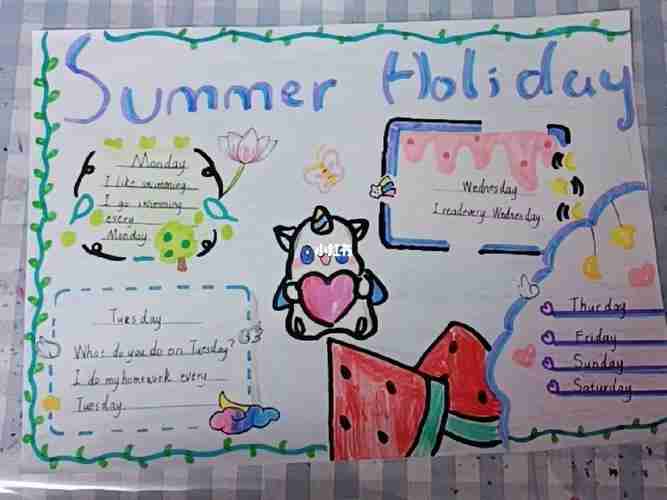 Summer Holiday
Monday
I like swimming
I go swimming
every
Monday
Wednesday
I read every Wednesday
小红书
Tuesday
What do you do on Tuesday?
I do my homework every
Tuesday
Thurday
Friday
Sunday
Saturday